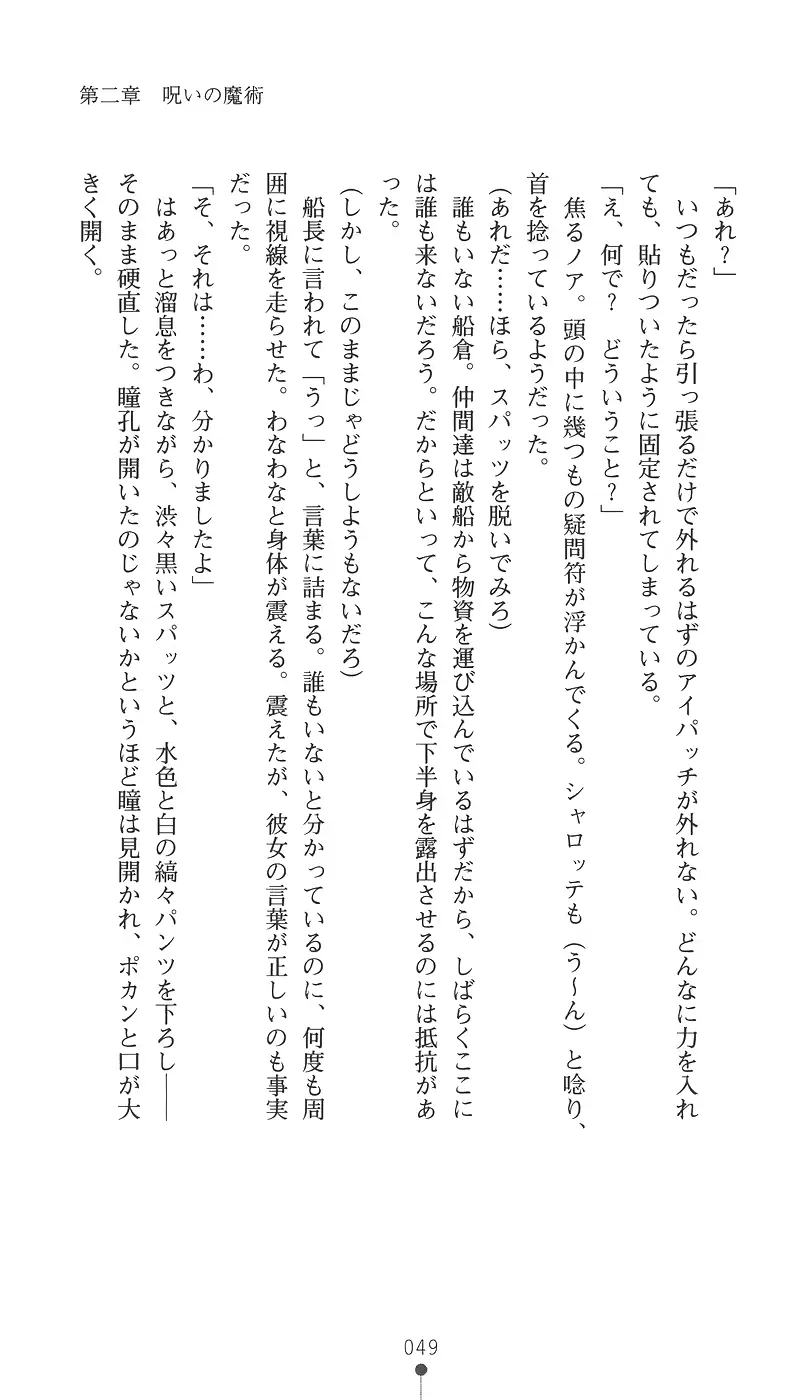 第二章　呪いの魔術
「あれ？」
　いつもだったら引っ張るだけで外れるはずのアイパッチが外れない。どんなに力を入れ
ても、貼りついたように固定されてしまっている。
「え、何で？　どういうこと？」
　焦るノア。頭の中に幾つもの疑問符が浮かんでくる。シャロッテも（う～ん）と唸り、
首を捻っているようだった。
（あれだ……ほら、スパッツを脱いでみろ）
　誰もいない船倉。仲間達は敵船から物資を運び込んでいるはずだから、しばらくここに
は誰も来ないだろう。だからといって、こんな場所で下半身を露出させるのには抵抗があ
った。
（しかし、このままじゃどうしようもないだろ）
　船長に言われて「うっ」と、言葉に詰まる。誰もいないと分かっているのに、何度も周
囲に視線を走らせた。わなわなと身体が震える。震えたが、彼女の言葉が正しいのも事実
だった。
「そ、それは……わ、分かりましたよ」
　はあっと溜息をつきながら、渋々黒いスパッツと、水色と白の縞々パンツを下ろし――
そのまま硬直した。瞳孔が開いたのじゃないかというほど瞳は見開かれ、ポカンと口が大
きく開く。
049